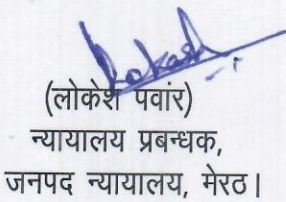 Lokesh
(लोकेश पवांर)
न्यायालय प्रबन्धक,
जनपद न्यायालय, मेरठ।